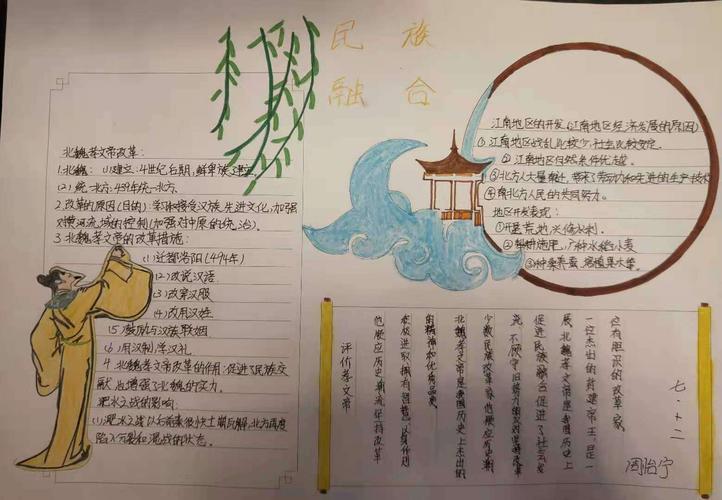 民族
融合
北魏孝文帝改革:
1.北魏: (1)建立:4世纪后期,鲜卑族
(2)统一北方:439年统一北方。
2.改革的原因(目的):学习和接受汉族先进文化,加强
对黄河流域的控制(加强对中原的统治)。
3.北魏孝文帝的改革措施:
(1)迁都洛阳(494年)
(2)改说汉语
(3)改穿汉服
(4)改用汉姓
(5)鼓励与汉族联姻
(6)用汉制,学汉礼
4.北魏孝文帝改革的作用:促进了民族交
融,也增强了北魏的实力。
淝水之战的影响:
(1)淝水之战以后前秦很快土崩瓦解,北方再度
陷入分裂和混战的状态。
江南地区的开发(江南地区经济发展的原因)
①江南地区战乱比较少,社会比较安定。
②江南地区自然条件优越。
③北方人大量南迁,带来了劳动力和先进的生产技术
④南北方人民的共同努力。
地区开发表现:
①开垦荒地,兴修水利。
②耕施用,广种水稻小麦
③种桑养蚕,培植果木等。
评价孝文帝
他顺应历史潮流坚持改革
进取拥有智慧以身作则
的精神和优秀品质
北魏孝文帝是我国历史上杰出的
少数民族改革家他顺应历史潮
不顾守旧势力的反对坚持改革
促进民族融合促进了社会发
展,北魏孝文帝是我国历史上
一位杰出的封建帝王,且是一
位有胆识的改革家。
七.十二
周怡宁